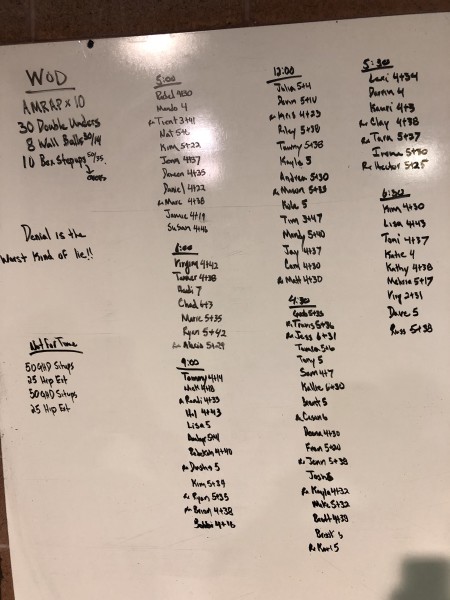 WOD
AMRAP x 10
30 Double Unders
8 Wall Balls 20/14
10 Box Stepups 50/35
Denial is the
Worst Kind of lie!!
Not For Time
50 GHD Situps
25 Hip Ext
50 GHD Situps
25 Hip Ext
5:00
4+30
4
Rx Trent 3+41
Nat 5+6
Kim 5+22
Jenn 4+37
4+35
Daniel 4+22
Rx Marc 4+38
Jamie 4+19
Susan 4+46
6:00
Virginia 4+42
Tanner 4+38
7
Chad 6+3
Marie 5+35
Ryan 5+42
Rx Alexia 5+29
9:00
Tammy 4+14
Nick 4+48
Randi 4+33
4+43
Lisa 5
Rebekah 4+40
Rx Dasha 5
Kim 5+29
Rx Ryan 5+35
Rx Brian 4+38
4+16
12:00
Julia 5+4
Rx Kris 4+23
Riley 5+38
Tammy 5+38
Kayla 5
Andrea 5+30
Rx Mason 5+33
5
Tim 3+47
Mandy 5+40
Jay 4+37
Cam 4+30
Rx Matt 4+30
4:30
Rx Travis 5+36
Rx Jess 6+31
Tony 5
Sam 4+7
Kallie 6+30
Brent 5
Deena 4+30
Fran 5+20
Rx Jenn 5+38
Josh
Rx Kayla 4+32
Mike 5+32
4+38
5
Rx Kari 5
5:30
Lexi 4+34
4
Kauri 4+3
Rx Clay 4+38
Rx Tara 5+37
Irene 5+30
Rx Hector 5+25
6:30
Kim 4+30
Lisa 4+43
Toni 4+37
Katie 4
Kathy 4+38
5+17
2+31
Dave 5
Russ 5+38